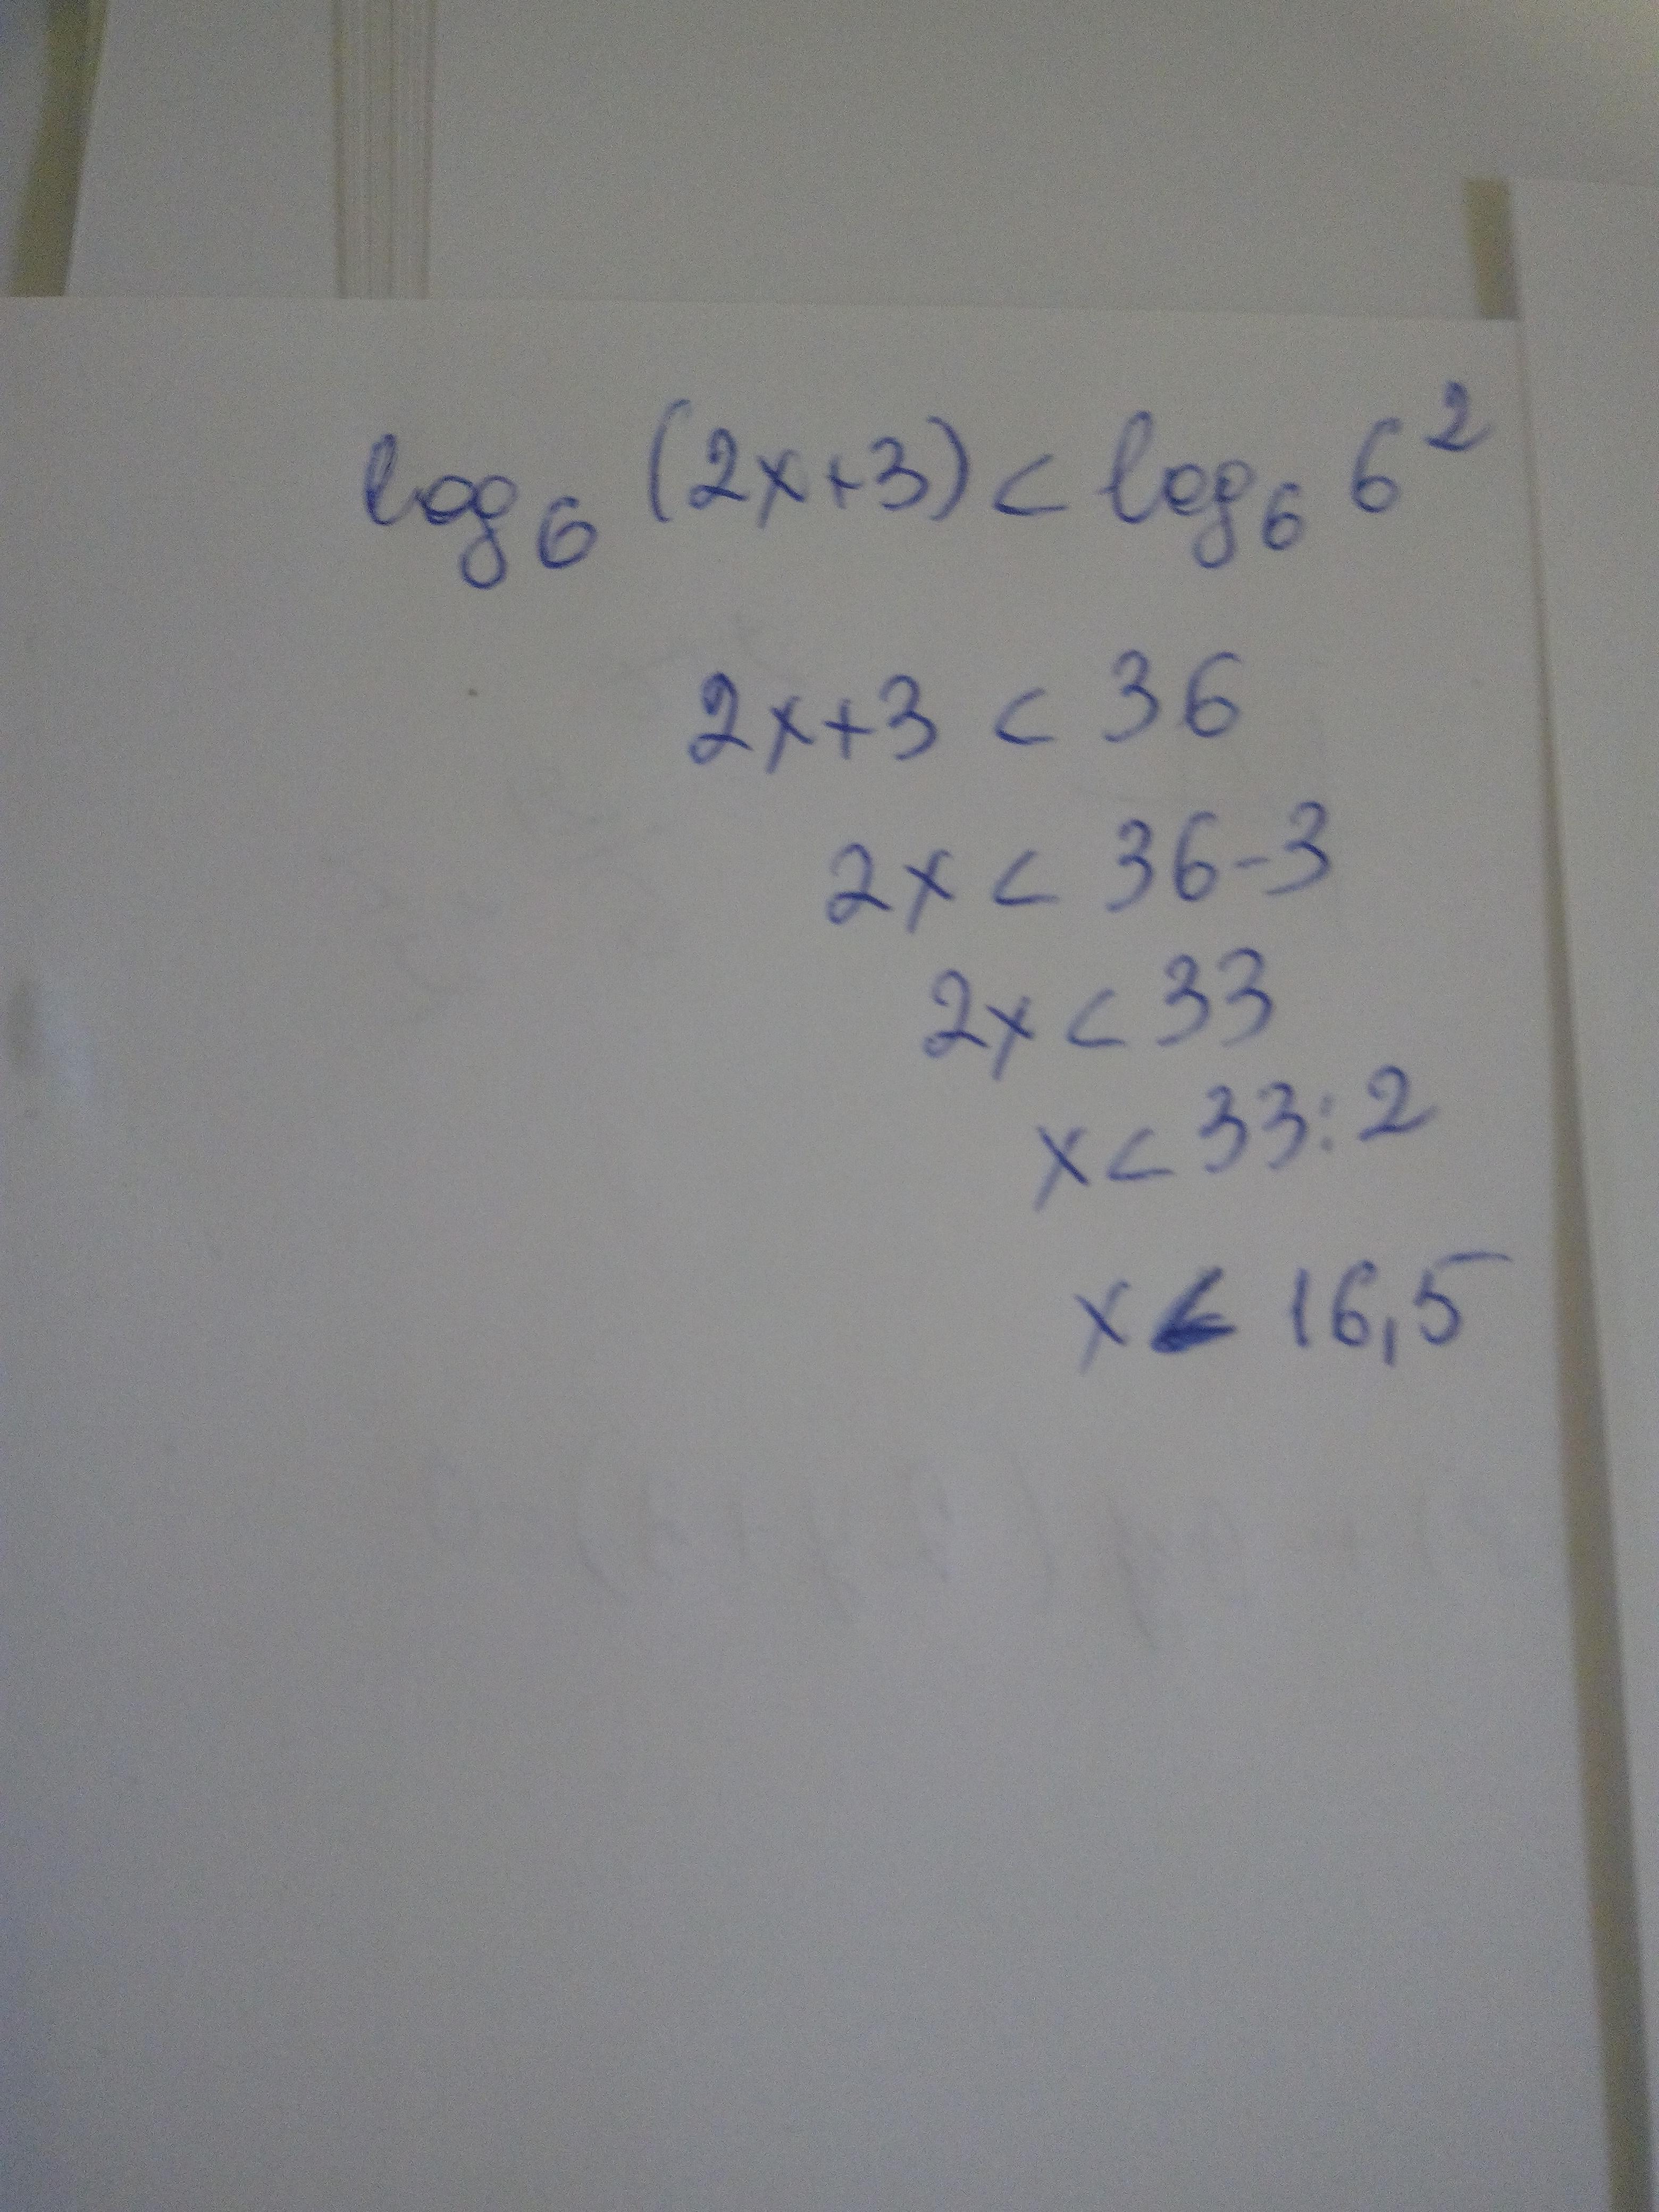 log₆ (2x+3) < log₆ 6²
2x+3 < 36
2x < 36-3
2x < 33
x < 33:2
x < 16,5